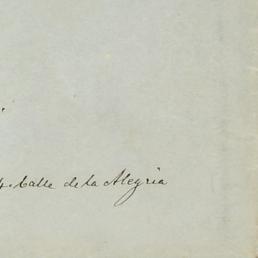 4. Calle de la Alegria